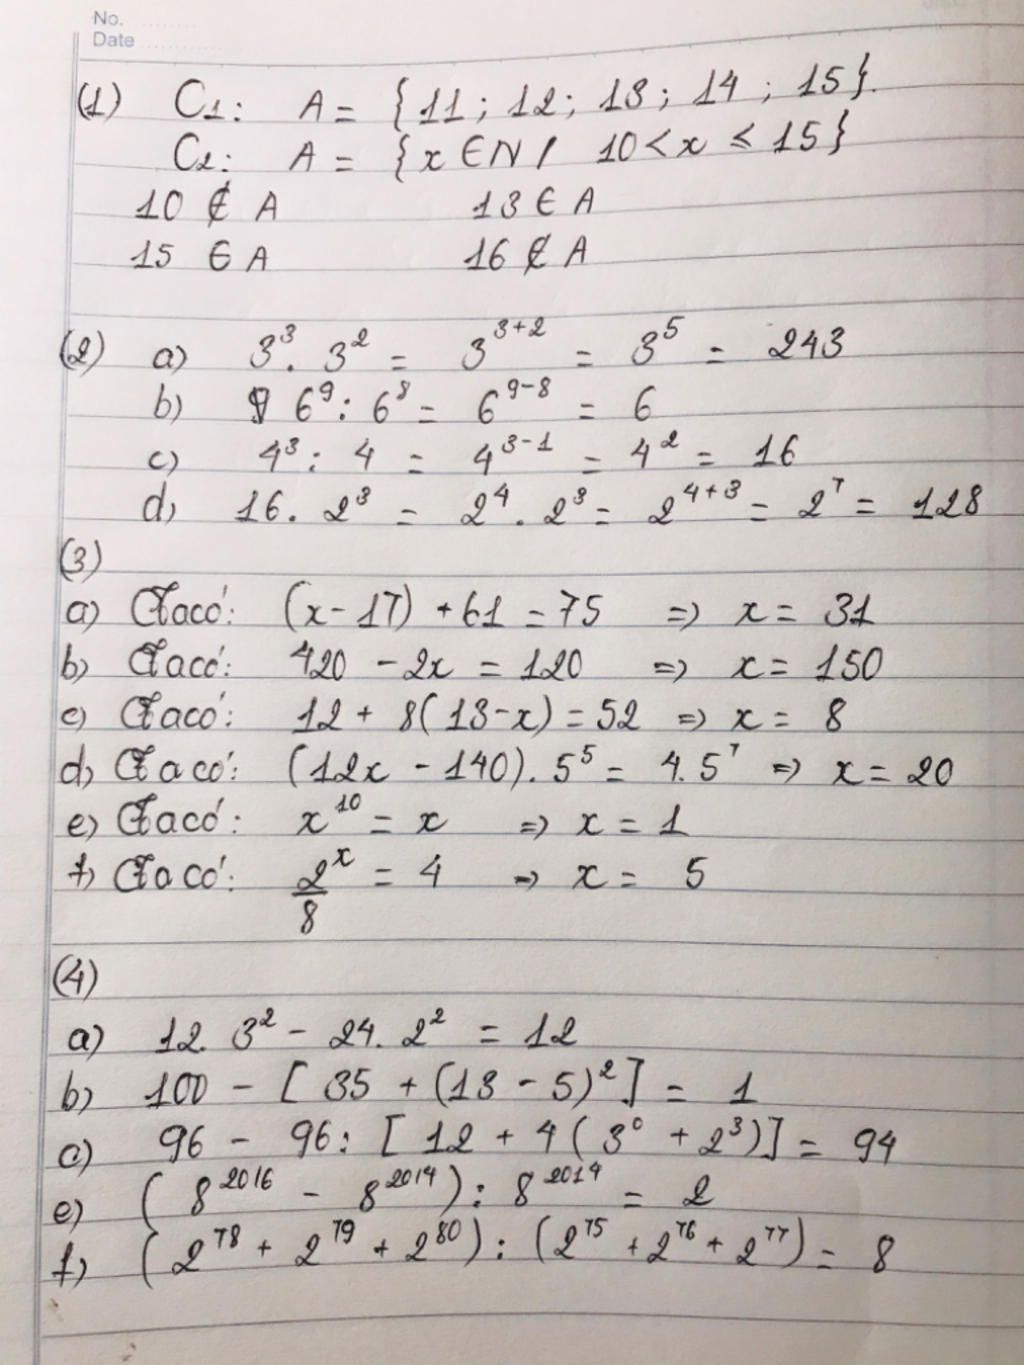 No.
Date
(1) C1: A = {11; 12; 13; 14; 15}.
C2: A = {x ∈ N / 10 < x ≤ 15}
10 ∉ A 13 ∈ A
15 ∈ A 16 ∉ A
(2) a) 3³ . 3² = 3³⁺² = 3⁵ = 243
b) 6⁹ : 6⁸ = 6⁹⁻⁸ = 6
c) 4³ : 4 = 4³⁻¹ = 4² = 16
d) 16 . 2³ = 2⁴ . 2³ = 2⁴⁺³ = 2⁷ = 128
(3)
a) Ta có: (x - 17) + 61 = 75 => x = 31
b) Ta có: 420 - 2x = 120 => x = 150
c) Ta có: 12 + 8(13 - x) = 52 => x = 8
d) Ta có: (12x - 140) . 5⁵ = 4 . 5⁷ => x = 20
e) Ta có: x¹⁰ = x => x = 1
f) Ta có: 2ˣ/8 = 4 => x = 5
(4)
a) 12. 3² - 24. 2² = 12
b) 100 - [35 + (13 - 5)²] = 1
c) 96 - 96 : [12 + 4(3⁰ + 2³)] = 94
e) (8²⁰¹⁶ - 8²⁰¹⁴) : 8²⁰¹⁴ = 2
f) (2⁷⁸ + 2⁷⁹ + 2⁸⁰) : (2⁷⁵ + 2⁷⁶ + 2⁷⁷) = 8